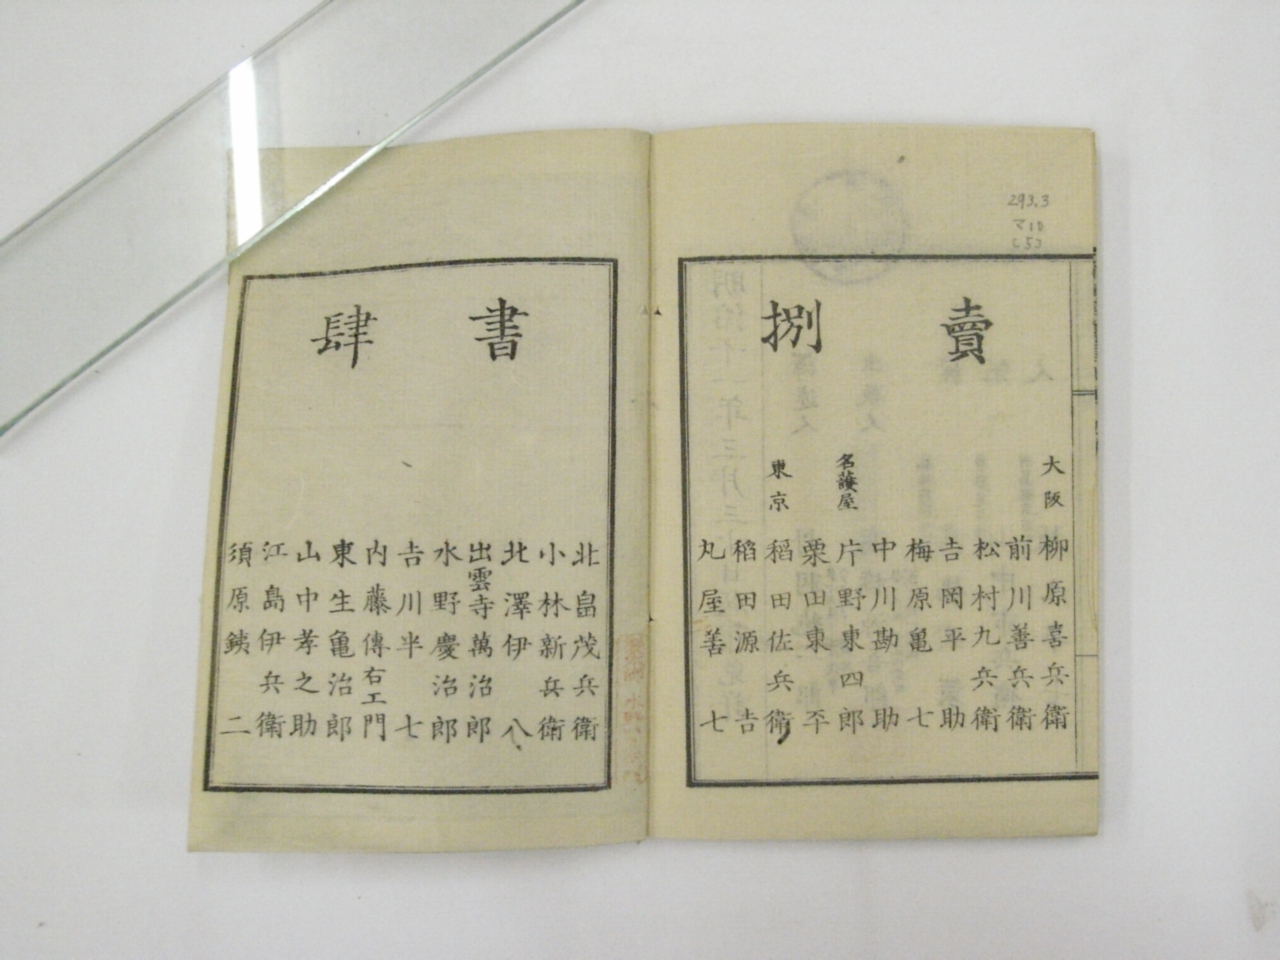 賣捌
大阪
柳原喜兵衛
前川善兵衛
松村九兵衛
吉岡平助
梅原亀七
中川勘助
名護屋
片野東四郎
栗田東平
東京
稲田佐兵衛
稲田源吉
丸屋善七
293.3
書肆
北畠茂兵衛
小林新兵衛
北澤伊八
出雲寺萬治郎
水野慶治郎
吉川半七
内藤傳右エ門
東生亀治郎
山中孝之助
江島伊兵衛
須原鉄二